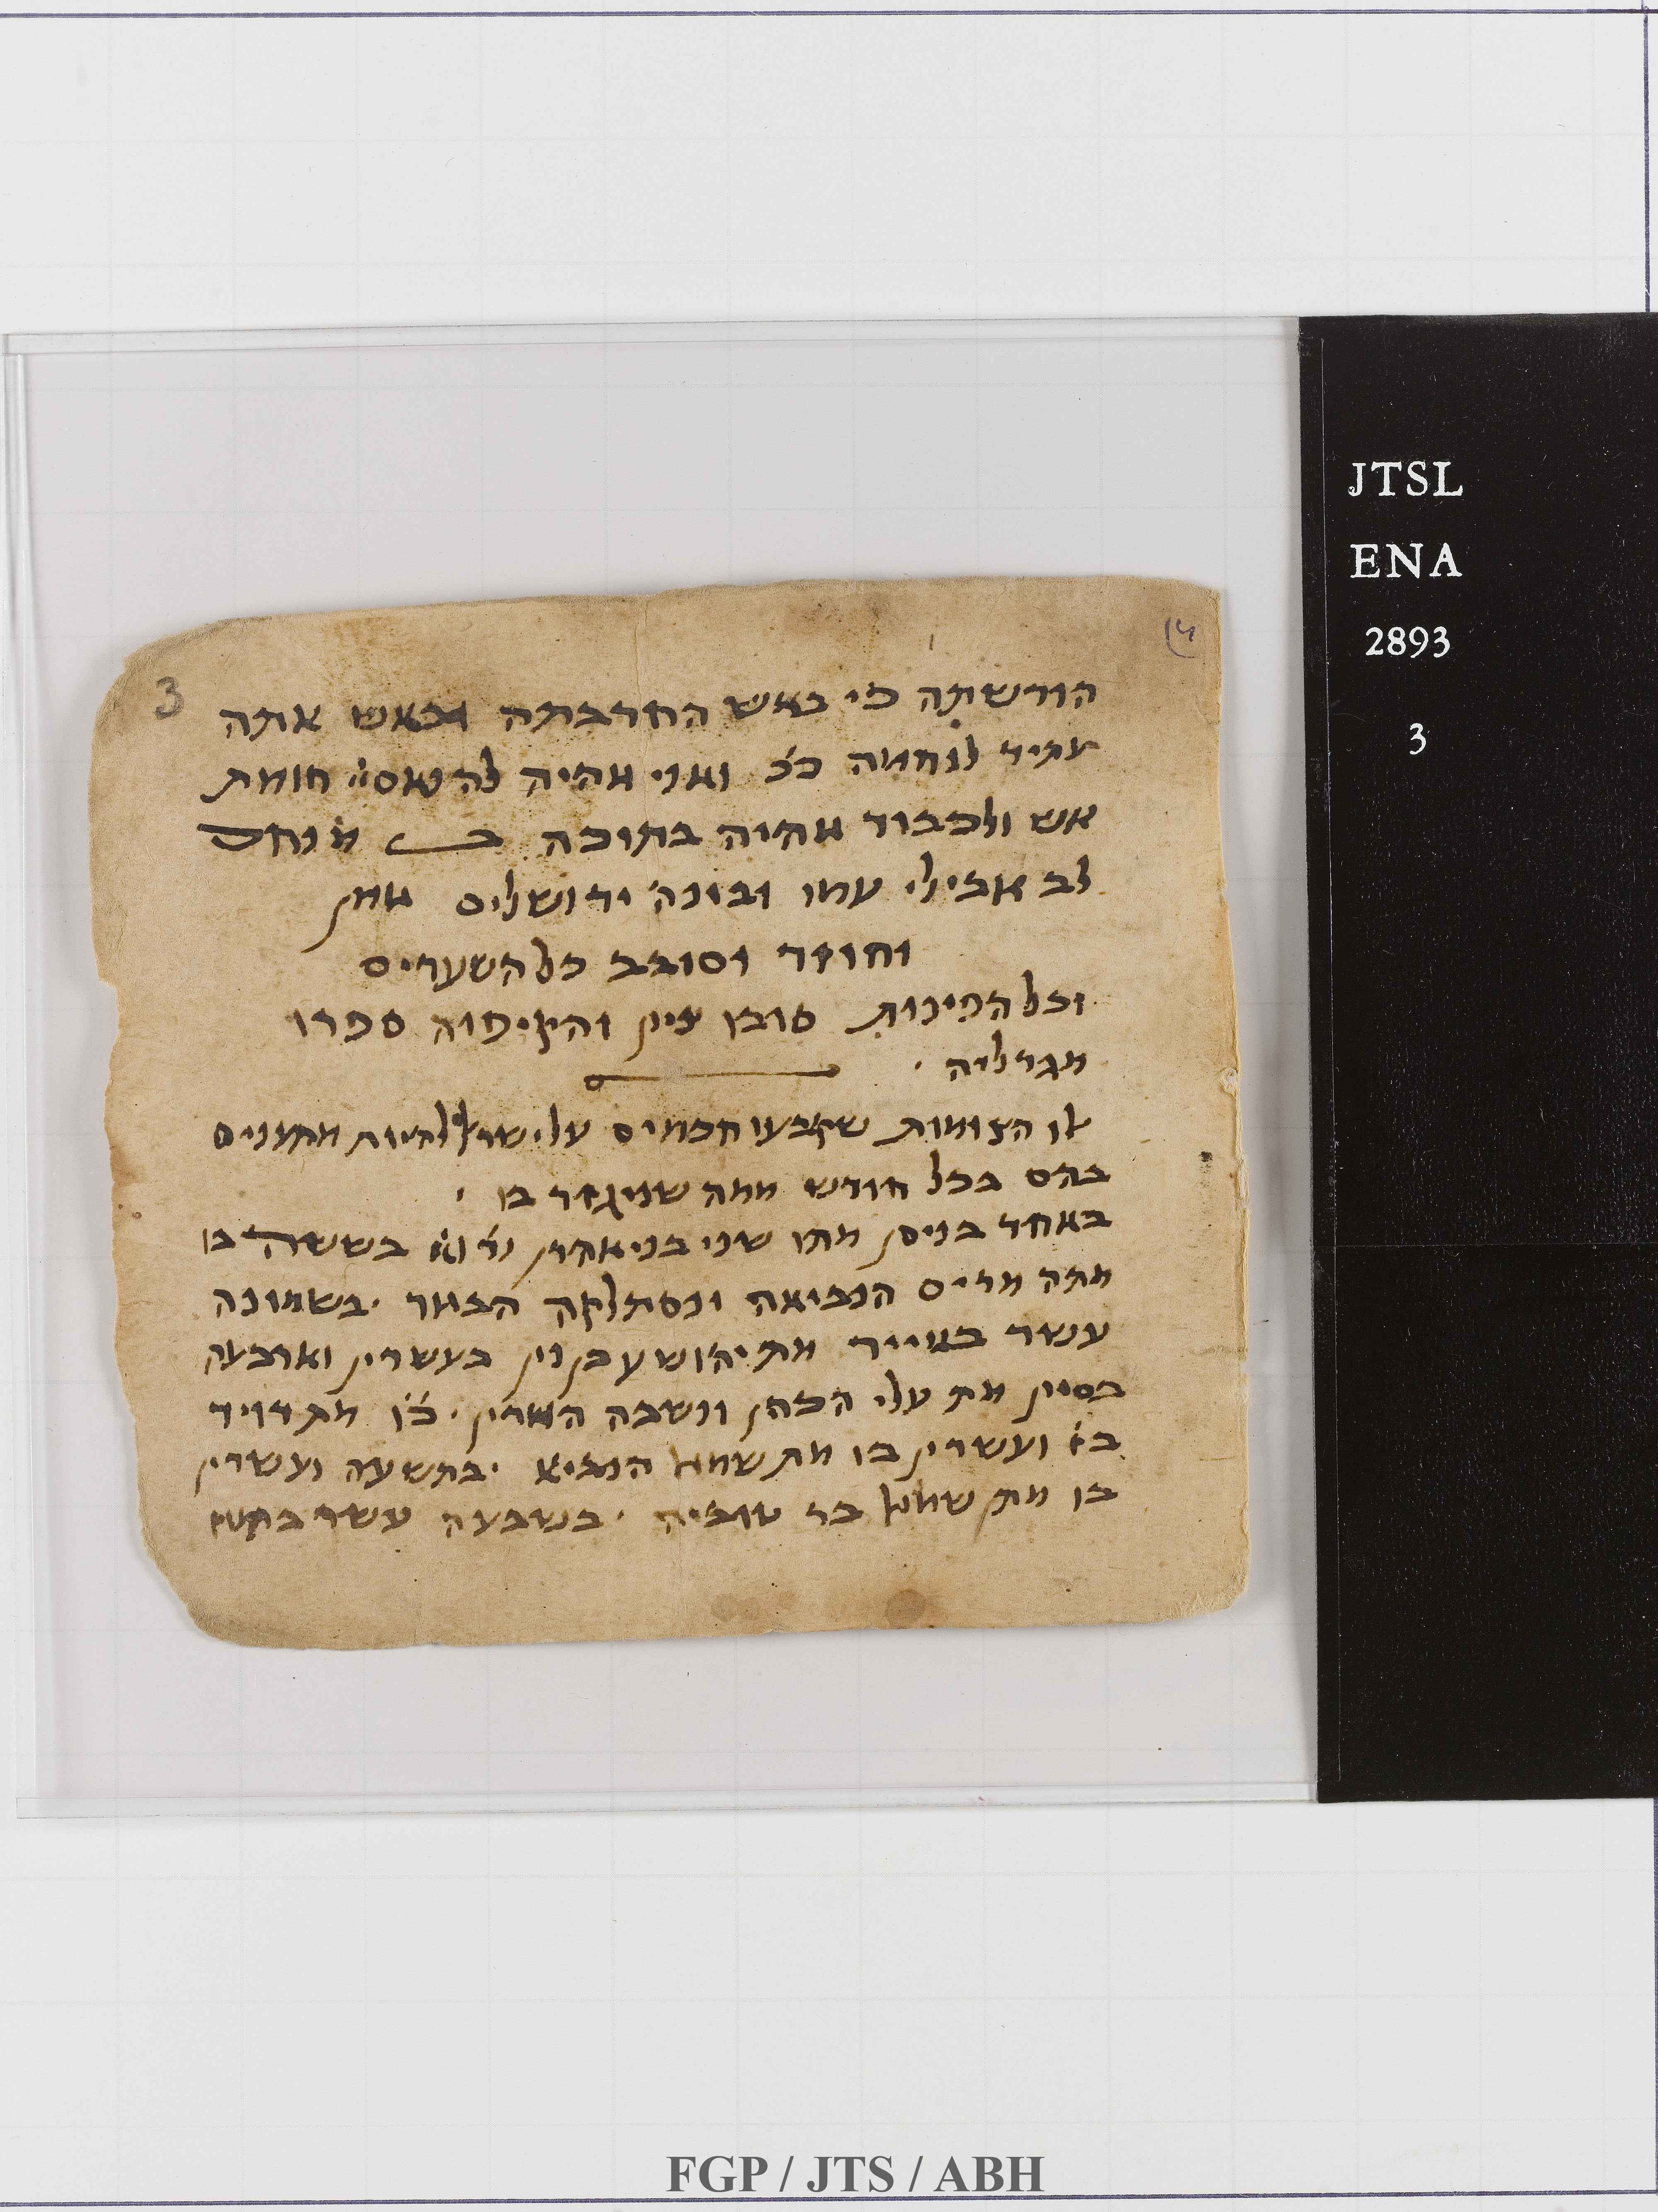 3
הורשתה כי באש החרבתה ובאש אתה
עתיד לנחמה כ׳כ ואני אהיה לה נאם יי חומת
אש ולכבוד אהיה בתוכה ב מנחם
לב אבילי עמו ובונה ירושלים אמן
וחוזר וסובב כל השערים
וכל הפינות סובו ציון והקיפוה ספרו
מגדליה
אלו הצומות שקבעו חכמים על ישראל להיות מתענים
בהם בכל חודש ממה שניגזר בו
באחד בניסן מתו שני בני אהרן בששה בו
מתה מרים הנביאה ונסתלקה הבאר בשמונה
עשר באייר מת יהושע בן נון בעשרין וארבעה
בסיון מת עלי הכהן ונשבה הארון מת דויד
ועשרין בו מת שמואל הנביא בתשעה ועשרין
בו מת שמואל בר טוביה בשבעה עשר בתמוז
JTSL
ENA
2893
3
FGP / JTS / ABH